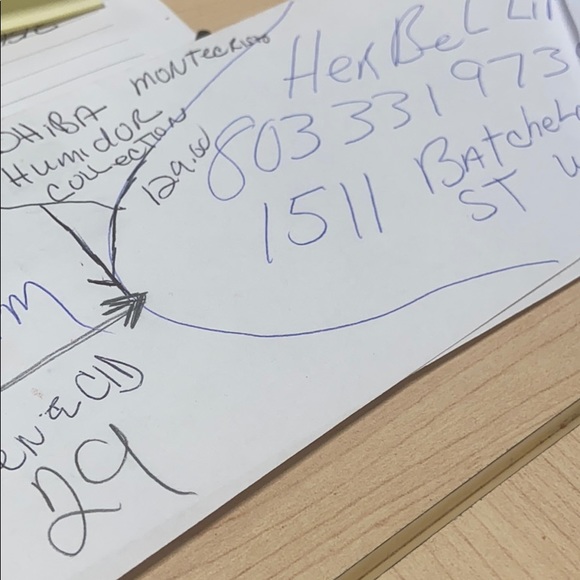 OHIBA MONTECRISTO
HUMIDOR
COLLECTION
129.00
HERBEL
803 331 973
1511 BATCHEL
ST W
M
29